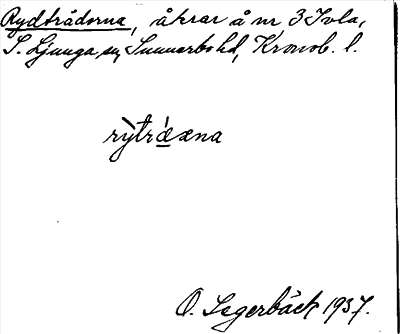 Rydträderna, åkrar å nr 3 Ivla,
S. Ljunga sn, Sunnerbo hd, Kronob. l.
rỳtrǽæna
O. Segerbäck 1937.